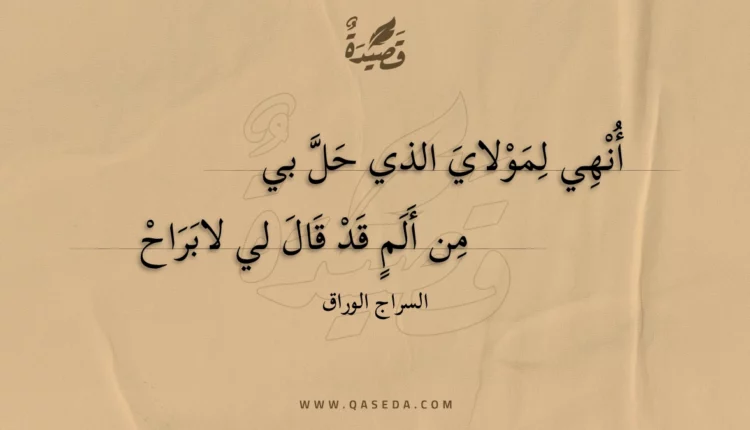 قَصِيْدَةٌ
أُنْهِي لِمَوْلايَ الذي حَلَّ بي
مِن أَلَمٍ قَدْ قَالَ لي لابَرَاحْ
السراج الوراق
WWW.QASEDA.COM